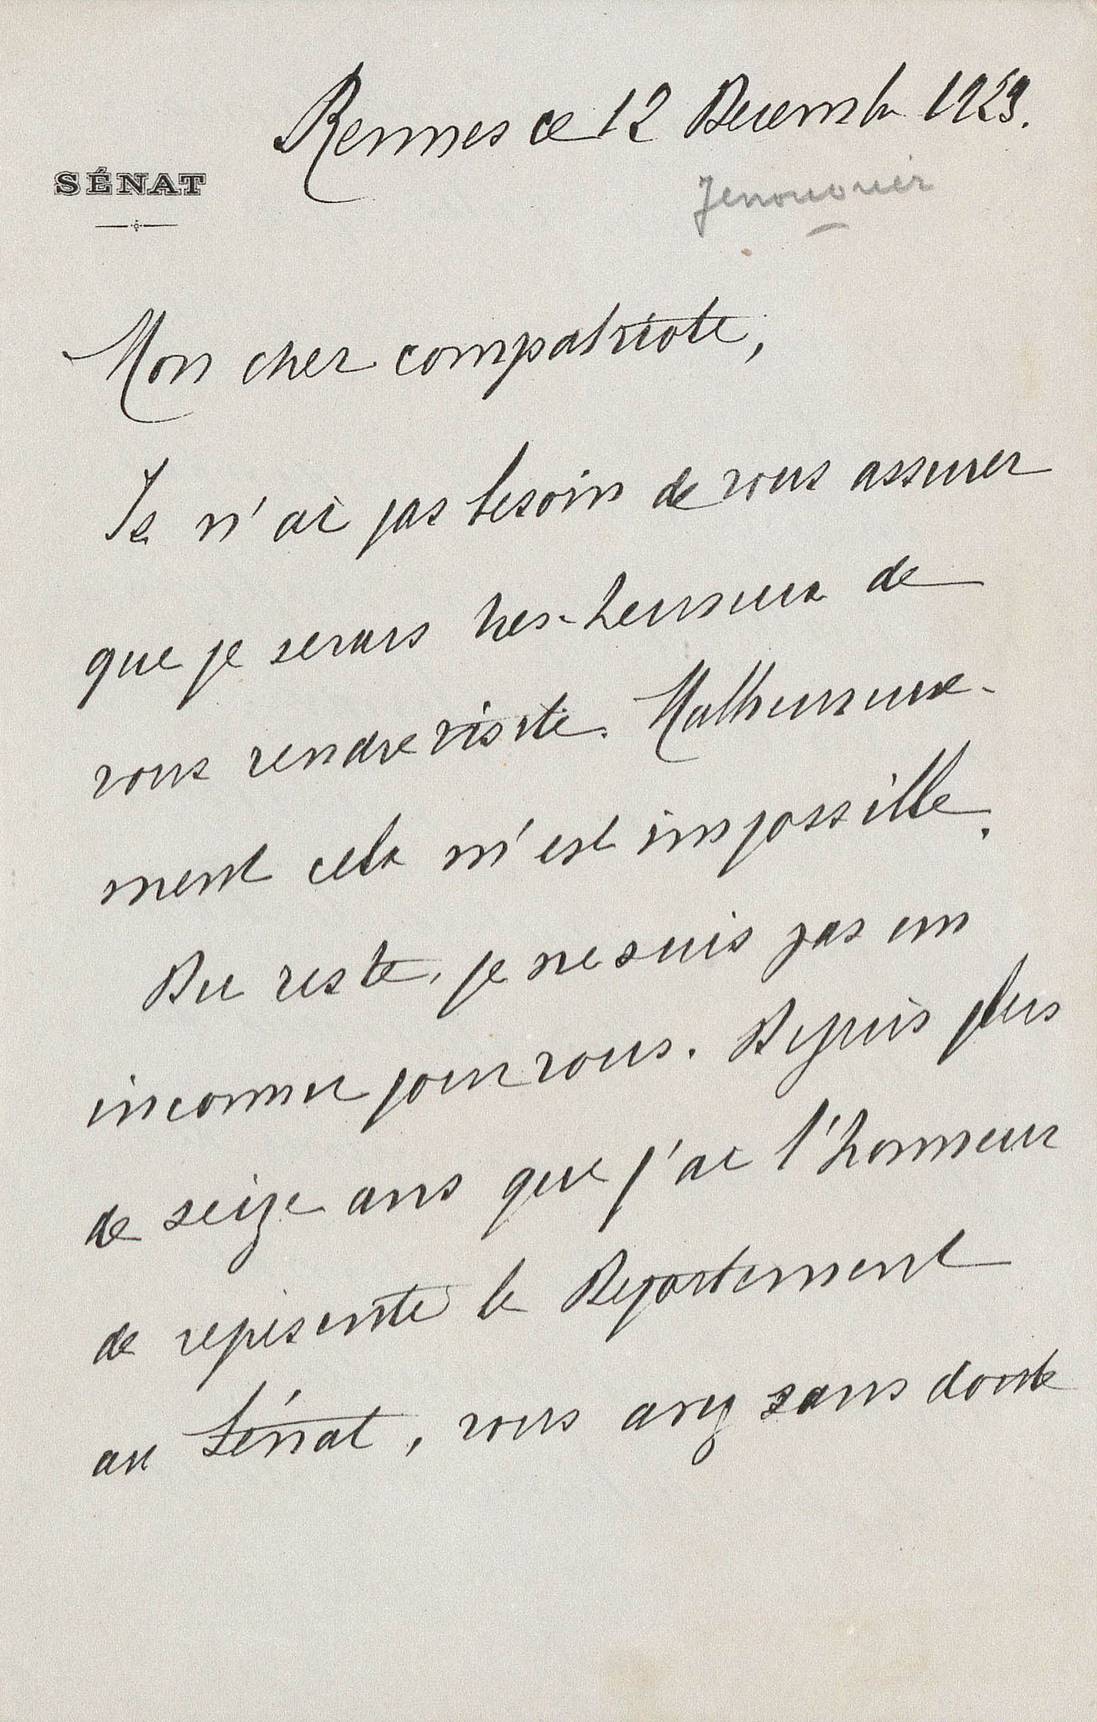 Rennes ce 12 Decembre 1923.
SÉNAT
Jenouvrier
Mon cher compatriote,
Je n'ai pas besoin de vous assurer
que je serais très-heureux de
vous rendre visite. Malheureuse-
ment cela m'est impossible.
Du reste, je ne suis pas un
inconnu pour vous. Depuis plus
de seize ans que j'ai l'honneur
de représenter le Departement
au Sénat, vous avez sans doute